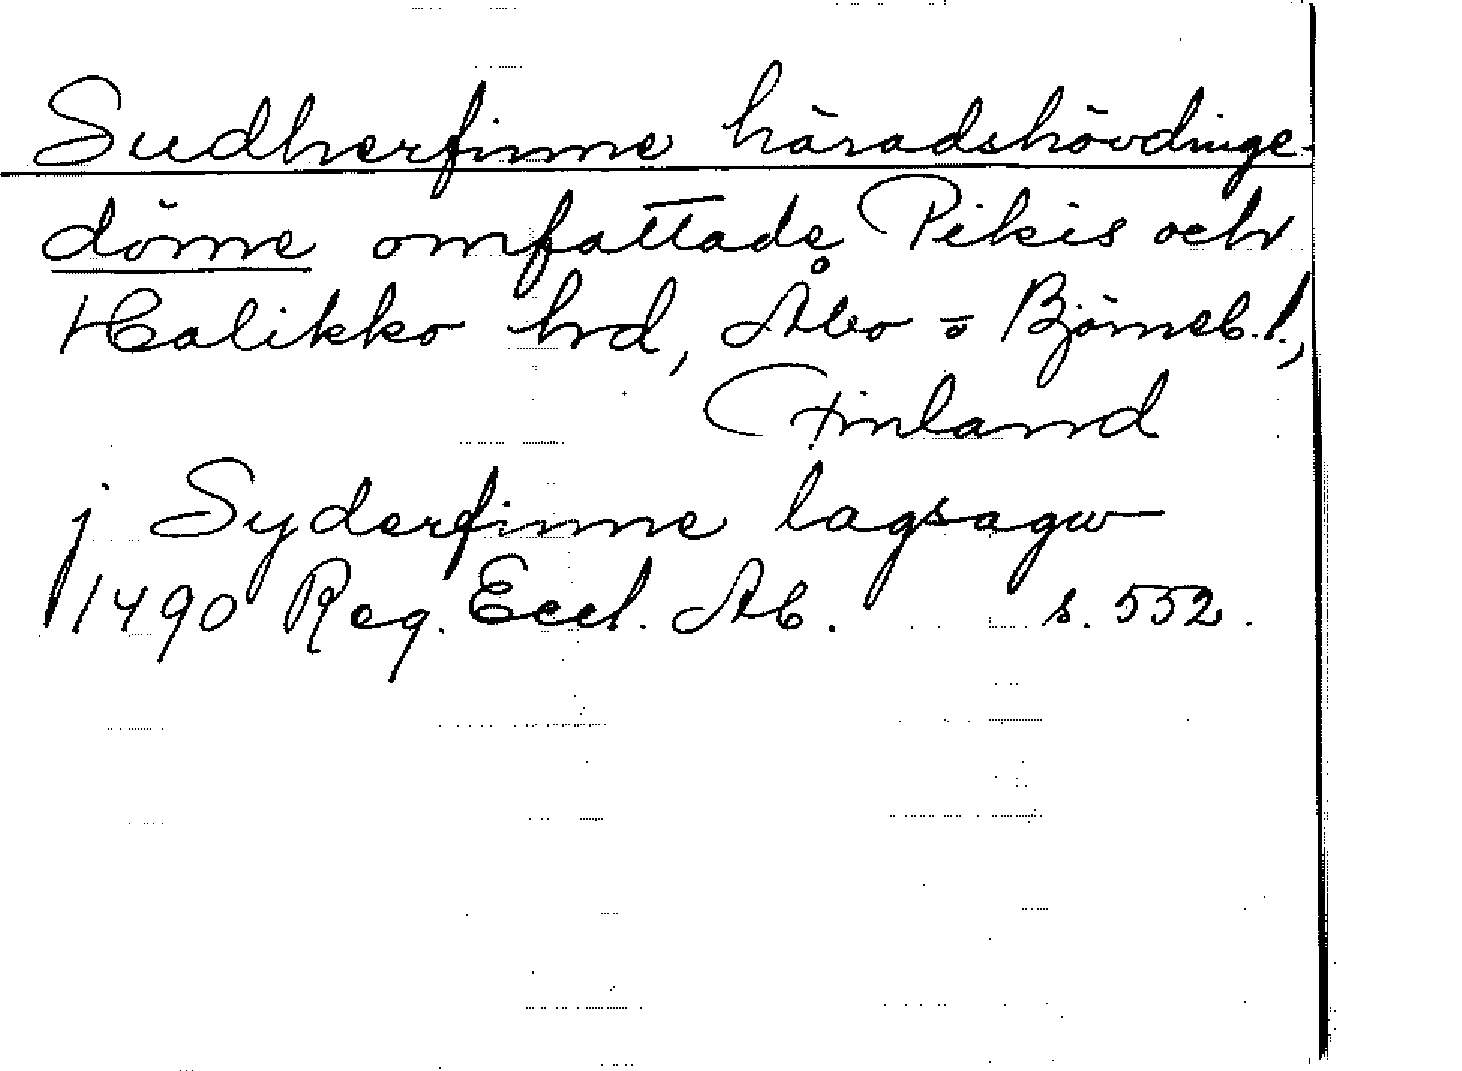 Sudherfinne häradshövdinge-
döme omfattade Pikis och
Halikko hrd, Åbo = Björneb. l.,
Finland
j Syderfinne lagsagw
1490 Reg. Eccl. Ab. s. 552.